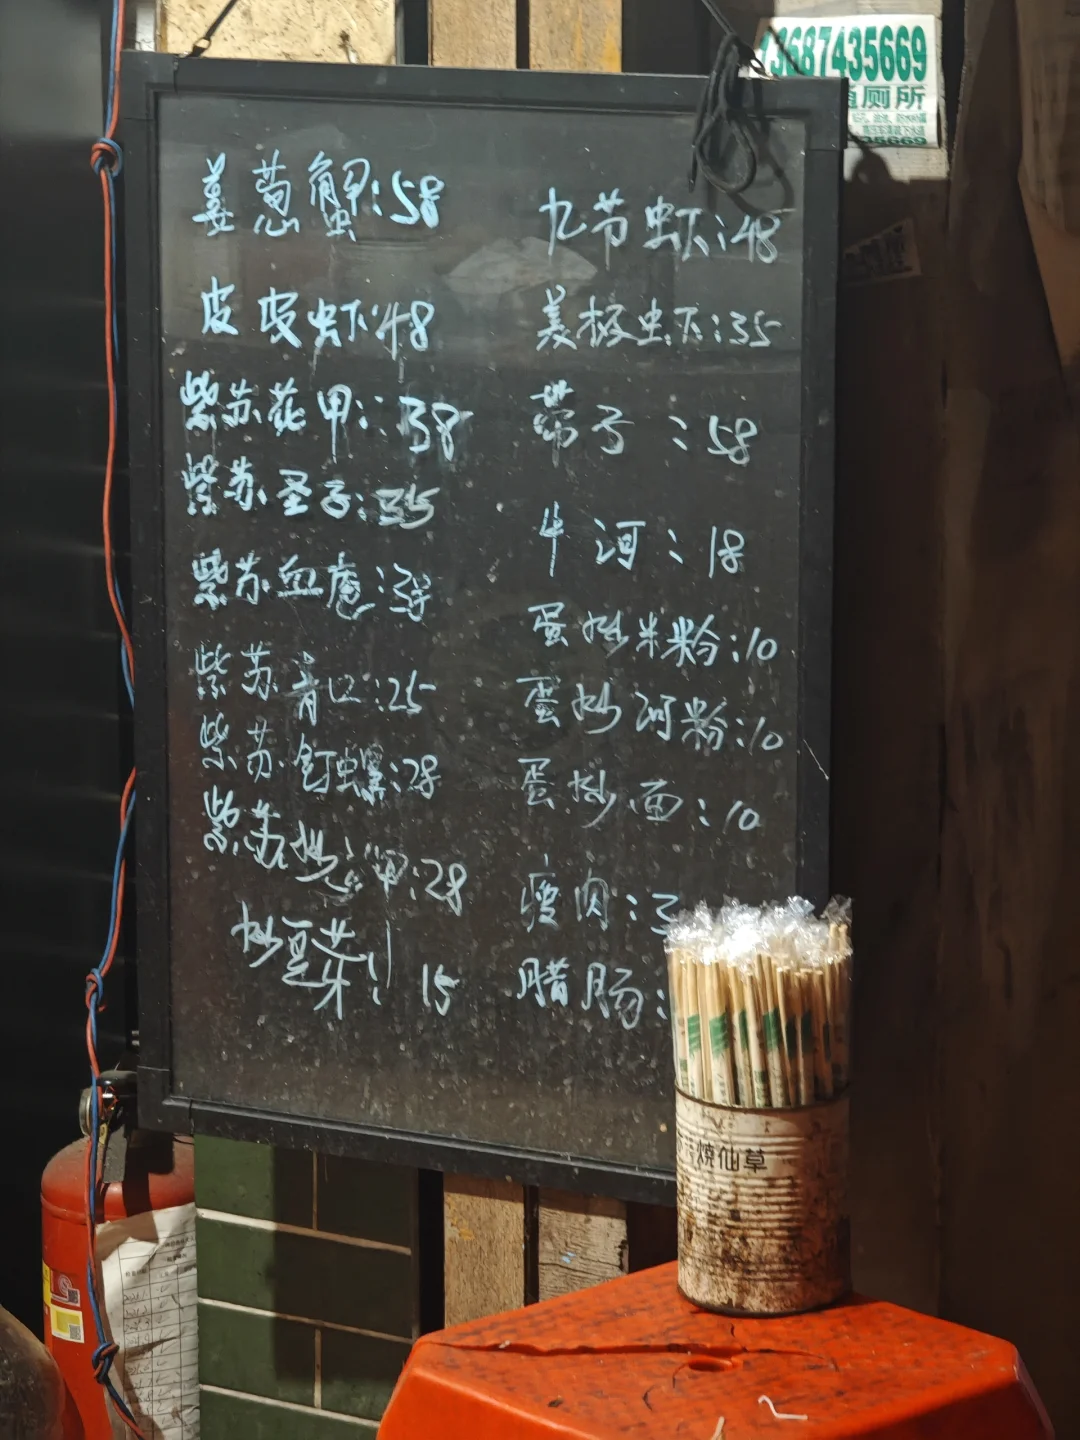 13687435669
厕所
35669
姜葱蟹:58
皮皮虾:48
紫苏花甲:38
紫苏圣子:35
紫苏血
紫苏青口:25
紫苏钉螺:28
紫苏炒 甲:28
炒豆芽: 15
九节虾:48
美极虾:35
带子:58
牛河:18
蛋炒米粉:10
蛋炒河粉:10
蛋炒面:10
瘦肉:
腊肠:
烧仙草